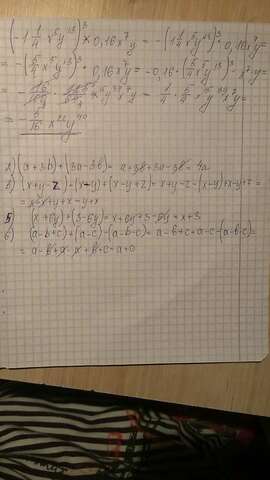 (-1 1/4 x⁵y¹³)³ * 0,16x⁷y = -(1 1/4 x⁵y¹³)³ · 0,16x⁷y =
= -(5/4 x⁵y¹³)³ · 0,16x⁷y = -0,16 · (5/4 x⁵y¹³)³ · x⁷y =
x¹⁵y³⁹x⁷y = - 1/4 · 5/4 x¹⁵y³⁹x⁷y =
= - 5/16 x²²y⁴⁰
1) (a+3b)+(3a-3b) = a+3b+3a-3b = 4a
2) (x+y-z)-(x-y)+(x-y+z) = x+y-z-(x-y)+x-y+z =
= x+y+x-y+x
5) (x+6y)+(3-6y) = x+6y+3-6y = x+3
6) (a-b+c)+(a-c)-(a-b-c) = a-b+c+a-c-(a-b-c) =
= a-b+a-a+b+c = a+c